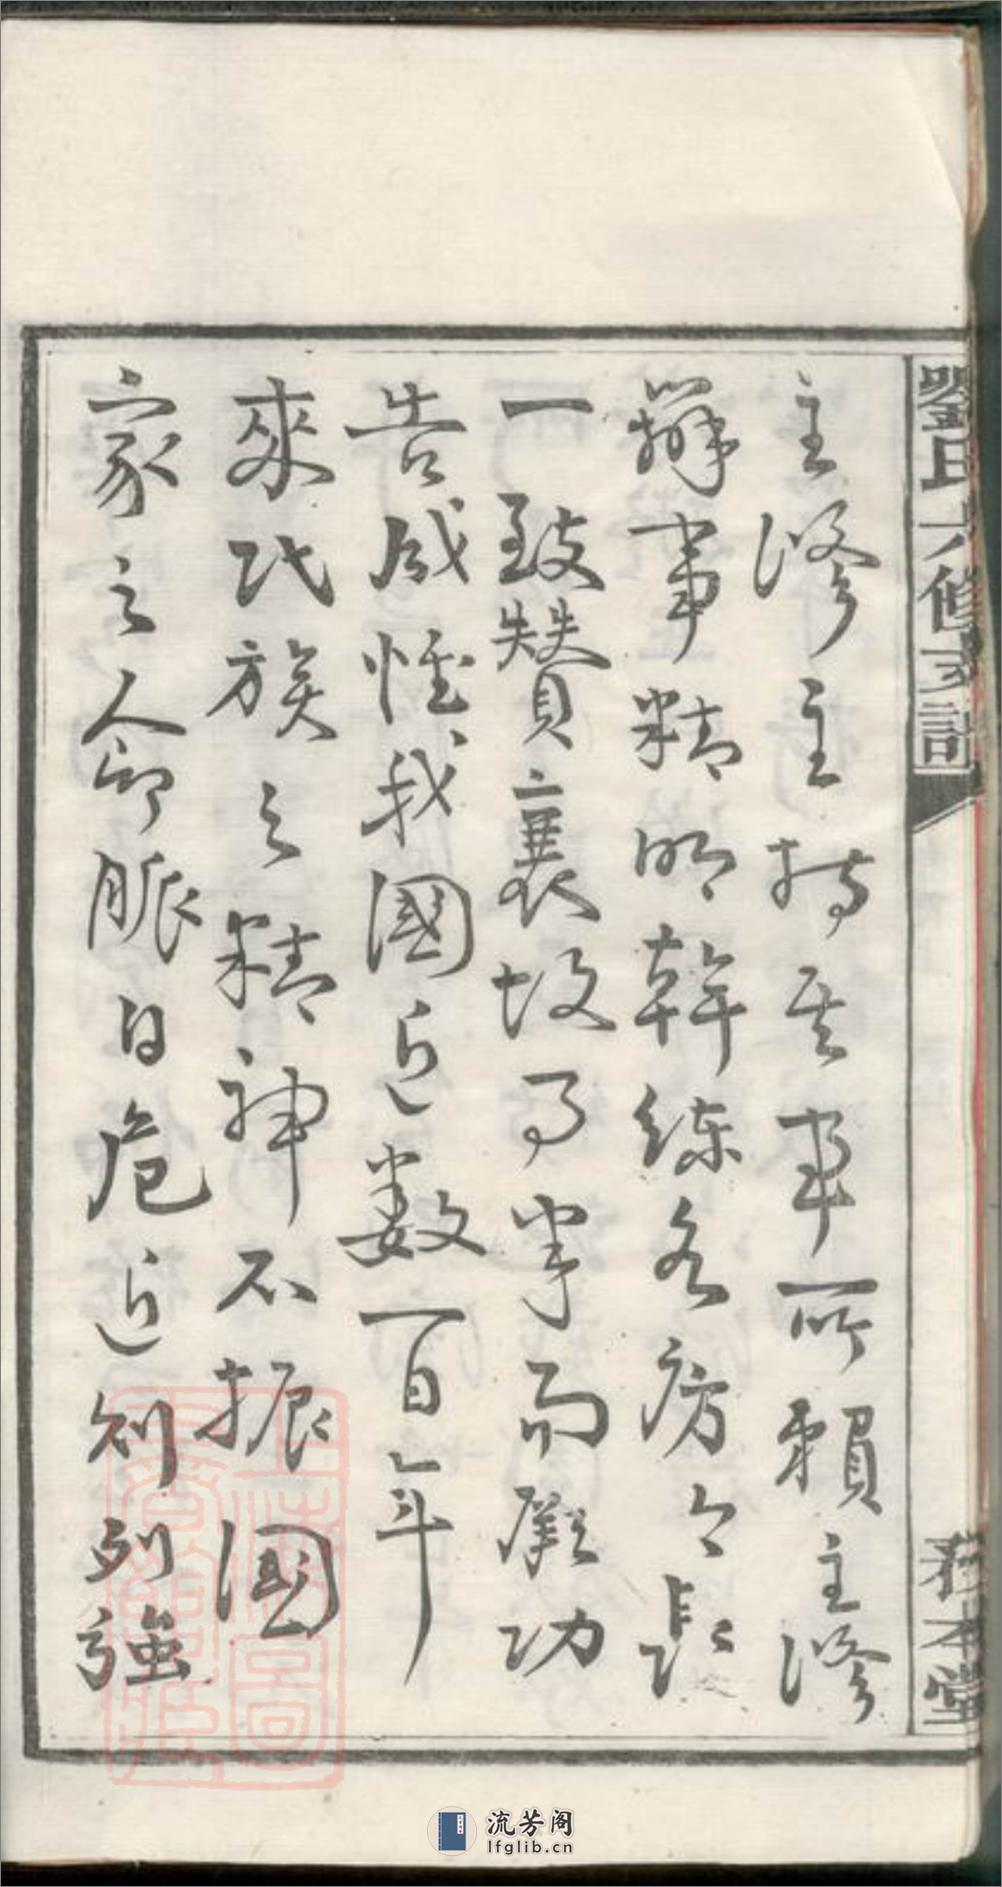 劉氏六修支譜
務本堂
主修主持其事所賴主修
辦事精明幹練各房分長
一致贊襄故得半而厥功
告成惟我國近數百年
來氏族之精神不振國
家之命脈日危近知列強
流芳阁
lfglib.cn